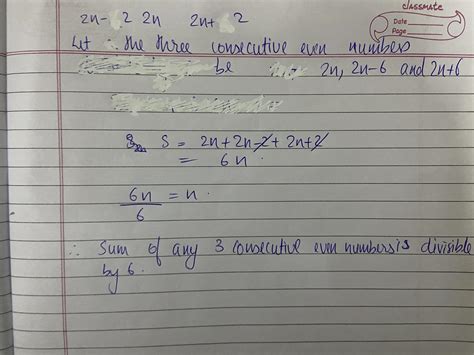 classmate
Date
Page
2n- 2 2n 2n+ 2
Let the three consecutive even numbers
be 2n, 2n-6 and 2n+6
S = 2n+2n-2+2n+2
= 6n.
6n/6 = n.
∴ Sum of any 3 consecutive even numbers is divisible
by 6.